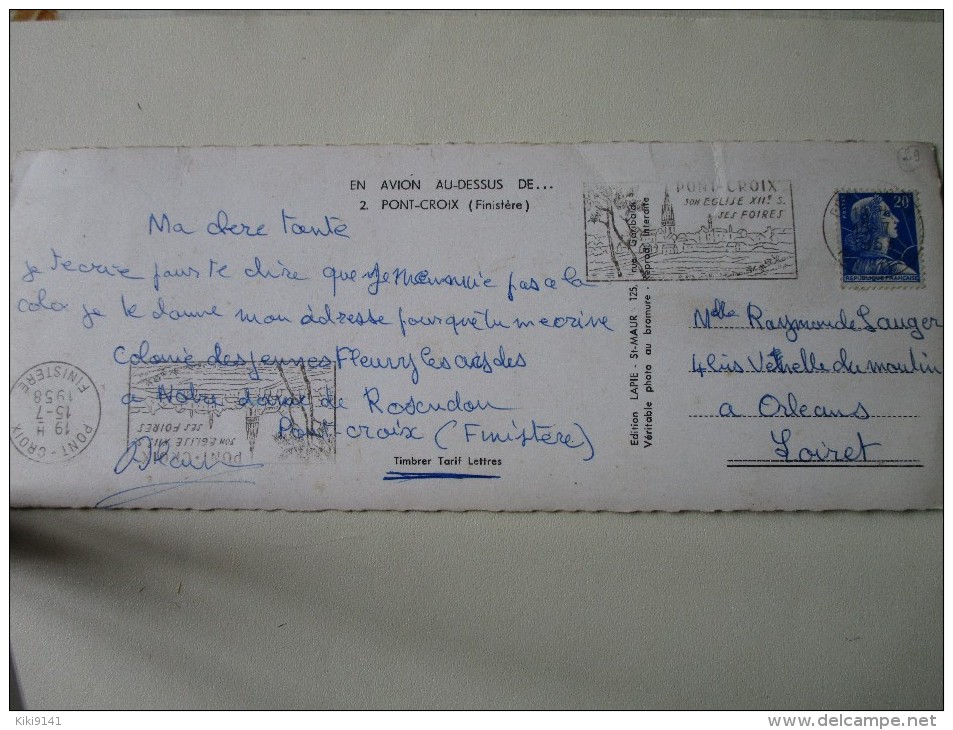 EN AVION AU-DESSUS DE...
2. PONT-CROIX (Finistère)
Ma chere tante
je t'ecrie pour te dire que je m'ennuie pas a la
colo je te donne mon adresse pour que tu m ecrive
Colonie des jeunes Fleury les
a Notre dame de Roscudon
Pont-croix (Finistère)
Timbrer Tarif Lettres
PONT-CROIX
SON EGLISE XIIe S.
SES FOIRES
PONT-CROIX
SON EGLISE XIIe S.
SES FOIRES
PONT-CROIX
19 H
15-7
1958
FINISTERE
Edition LAPIE - St-MAUR 125, rue Garibaldi
Véritable photo au bromure - Reprod. Interdite
29
POSTES
20F
REPUBLIQUE FRANÇAISE
Melle Raymonde Lauger
4 bis Venelle du moulin
a Orleans
Loiret
Kiki9141
www.delcampe.net